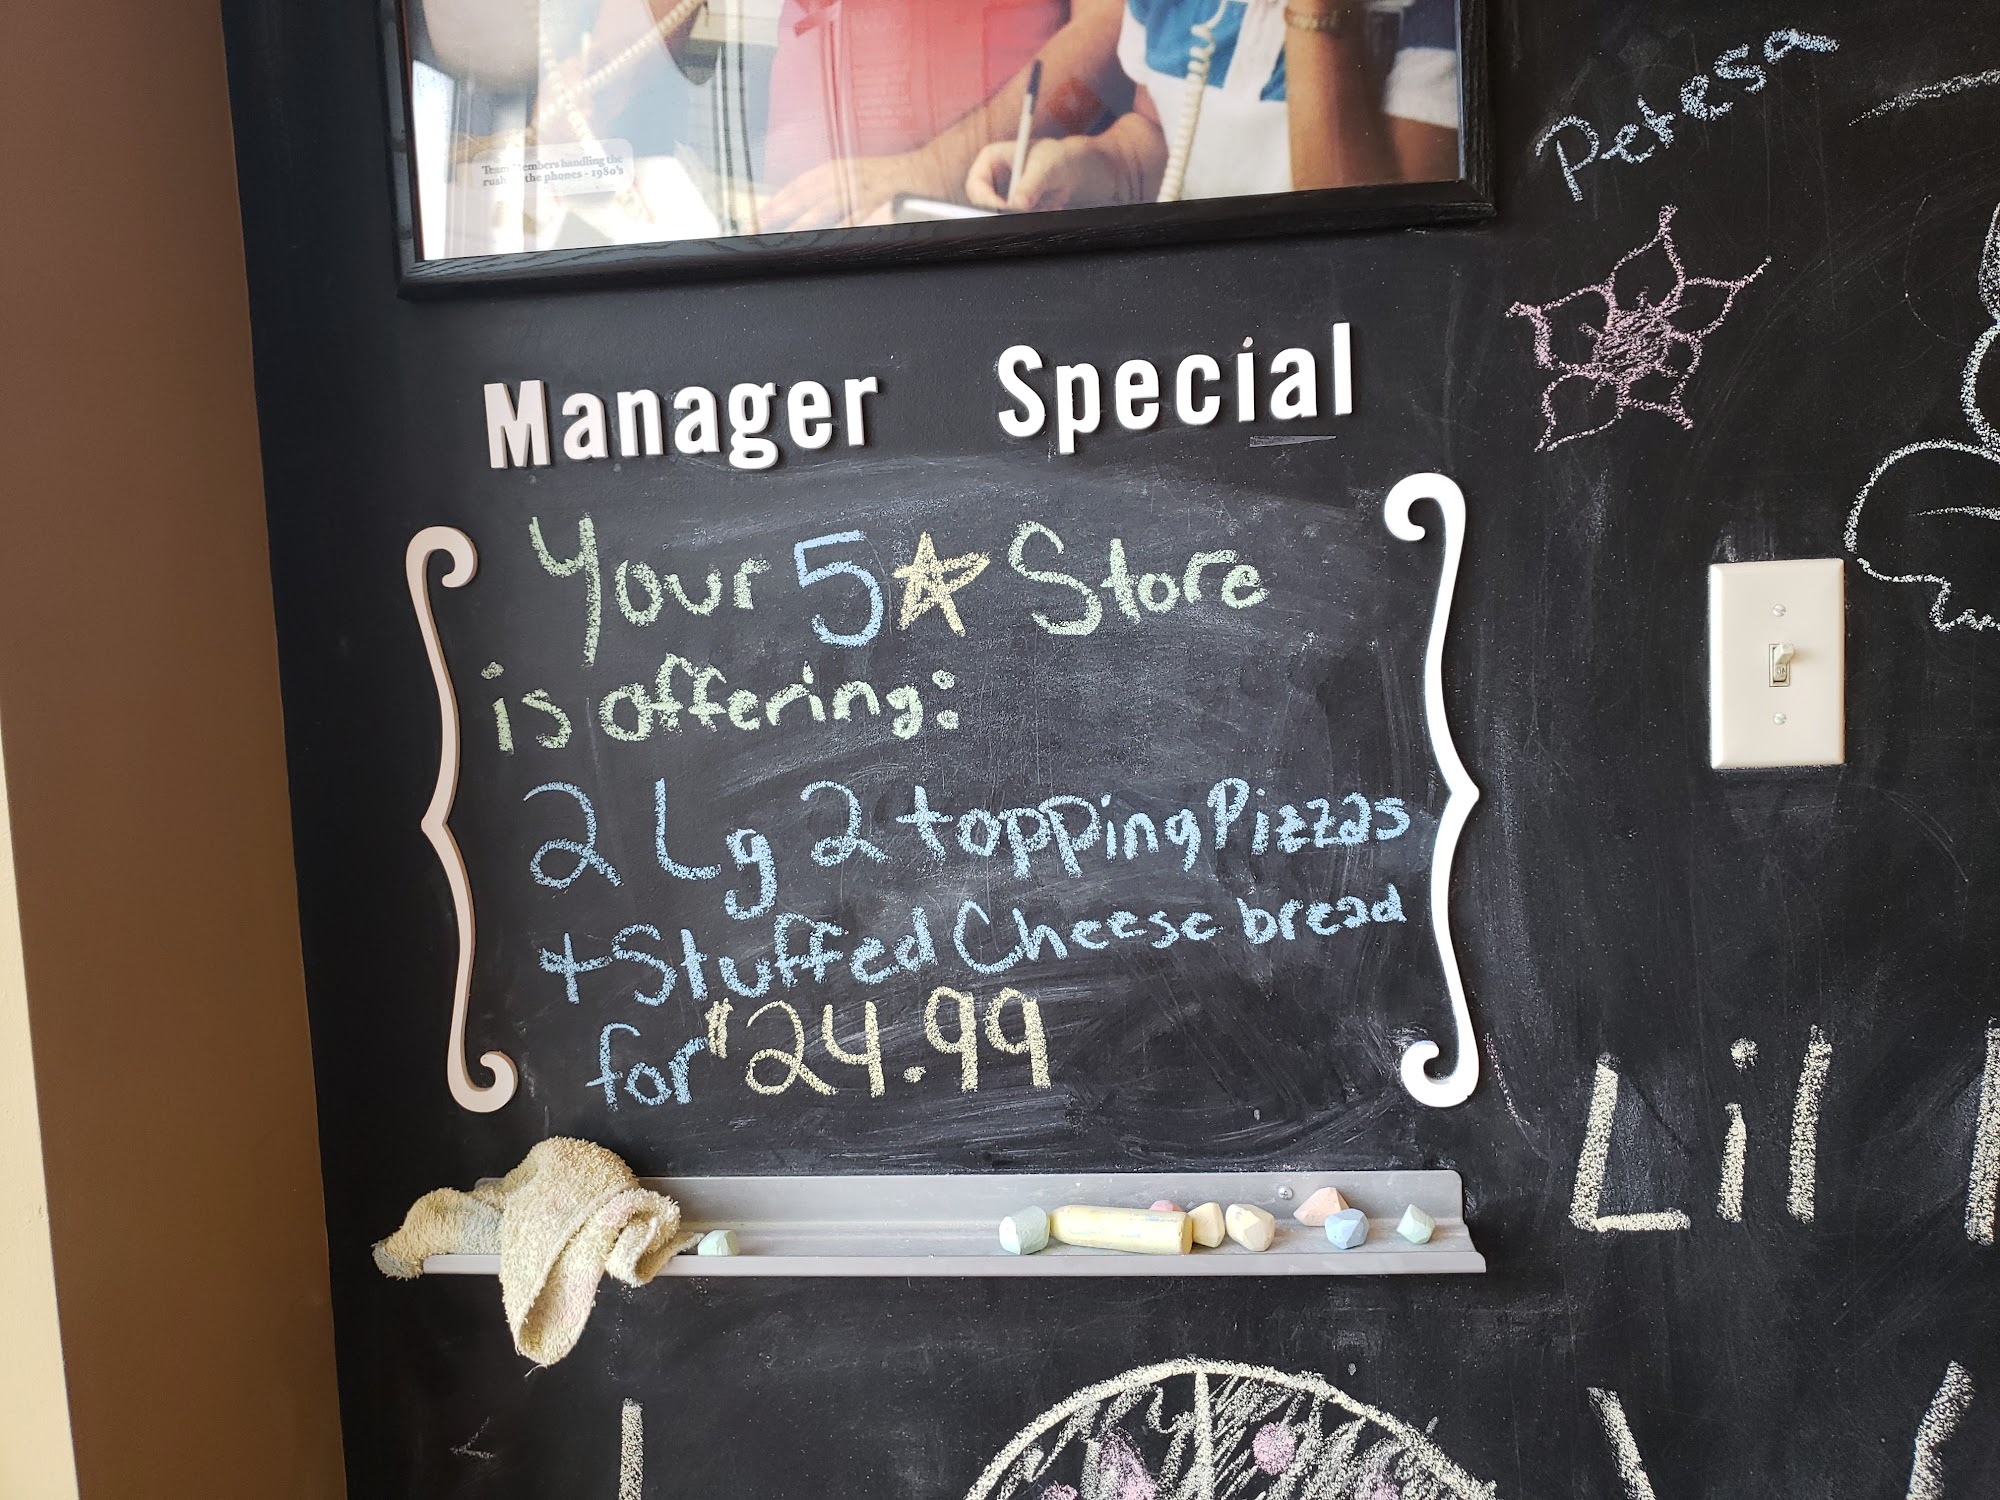 Team Members handling the
rush of the phones - 1980's
Petesa
Manager Special
Your 5☆ Store
is offering:
2 Lg 2 topping Pizzas
+ Stuffed Cheese bread
for $24.99
Lil